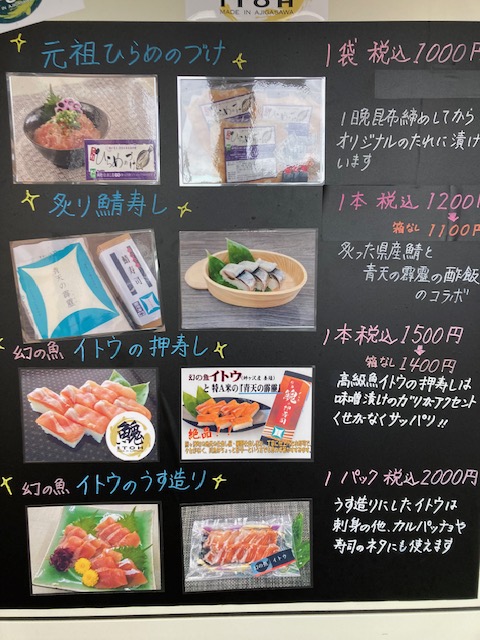 ITOH
MADE IN AJIGASAWA
元祖ひらめのづけ
1袋 税込1000円
ひらめのづけ
1晩昆布締めしてから
オリジナルのたれに漬け
います
炙り鯖寿し
1本 税込1200
箱なし 1100円
青天の霹靂
鯖寿司
炙った県産鯖と
青天の霹靂の酢飯
のコラボ
幻の魚 イトウの押寿し
1本 税込1500円
箱なし 1400円
幻の魚イトウ(鰺ヶ沢産 養殖)
と 特A米の「青天の霹靂」
絶品!
鮠
ITOH
高級魚イトウの押寿しは
味噌漬けのカツオがアクセント
くせがなくサッパリ!!
幻の魚 イトウのうす造り
1パック 税込2000円
幻の魚 イトウ
うす造りにしたイトウは
刺身の他、カルパッチョや
寿司のネタにも使えます